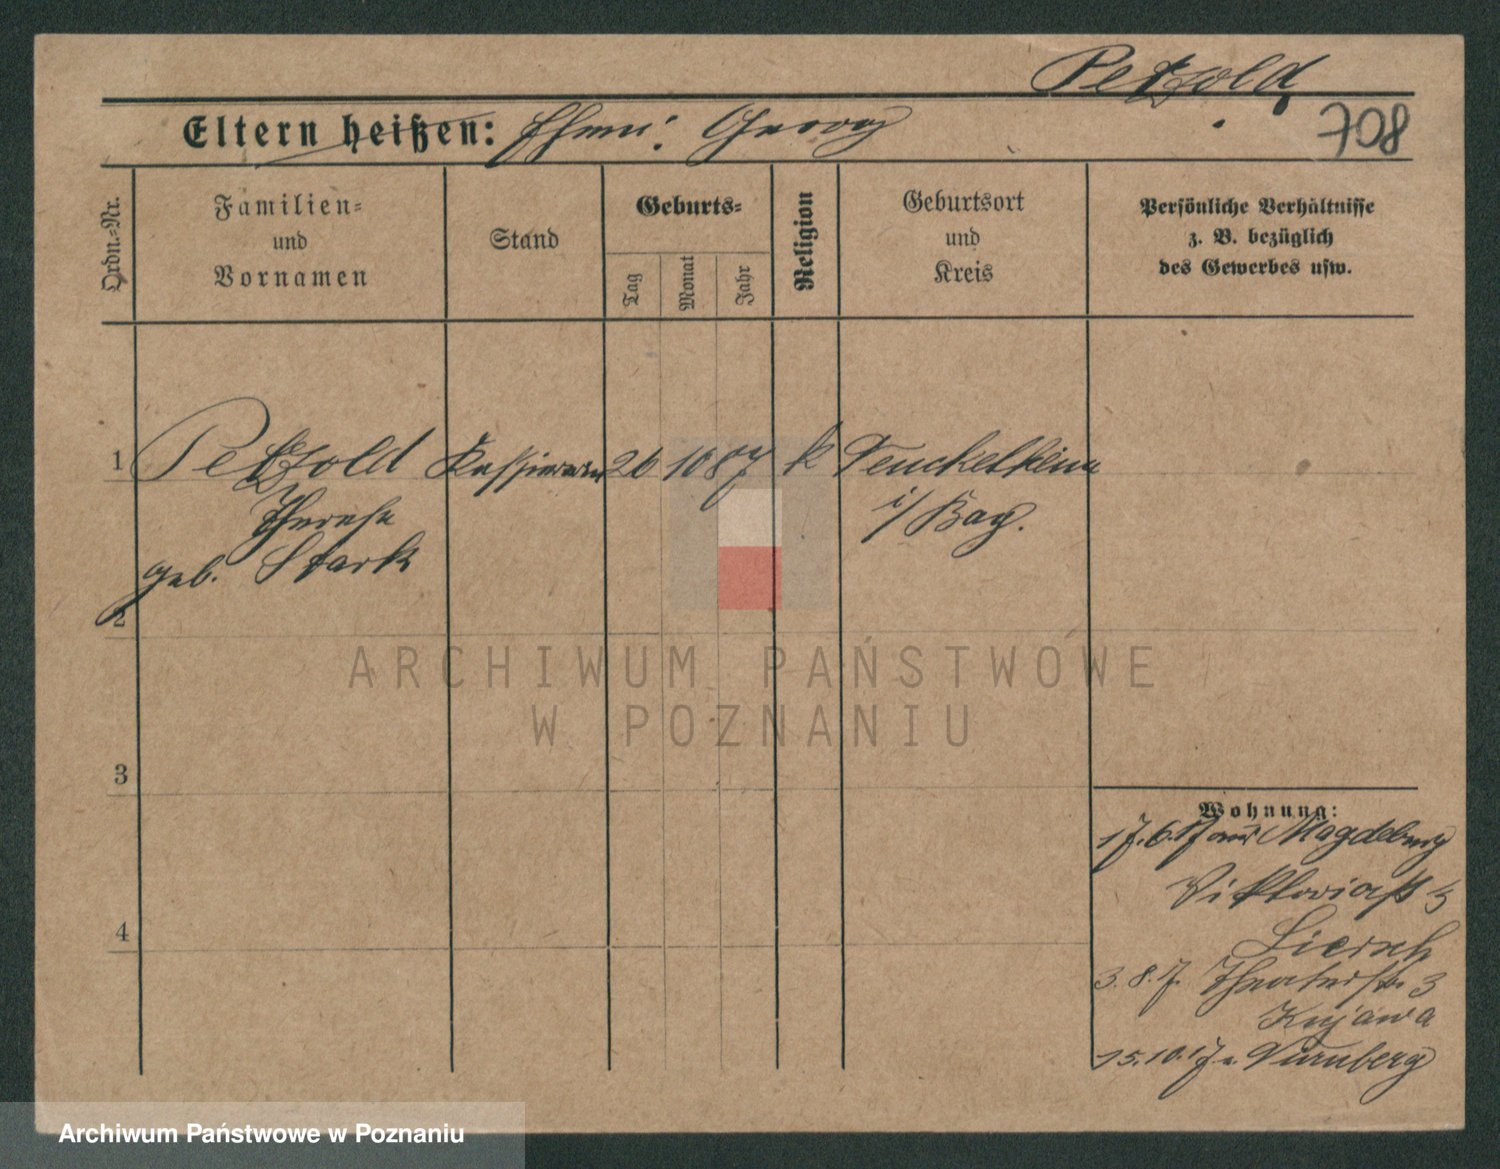 Petzold
Eltern heißen: Ehem: Georg
708
Ordn.-Nr.
Familien-
und
Vornamen
Stand
Geburts-
Tag
Monat
Jahr
Religion
Geburtsort
und
Kreis
Persönliche Verhältnisse
z. B. bezüglich
des Gewerbes usw.
1 Petzold 26 10 87 k
i/Bay.
Therese
geb. Stark
2
3
4
Wohnung:
17.6.17 aus Magdeburg
Viktoriastr 3
Liersch
3.8.17. Theaterstr. 3
Kujawa
15.10.17 n. Nürnberg
ARCHIWUM PAŃSTWOWE
W POZNANIU
Archiwum Państwowe w Poznaniu